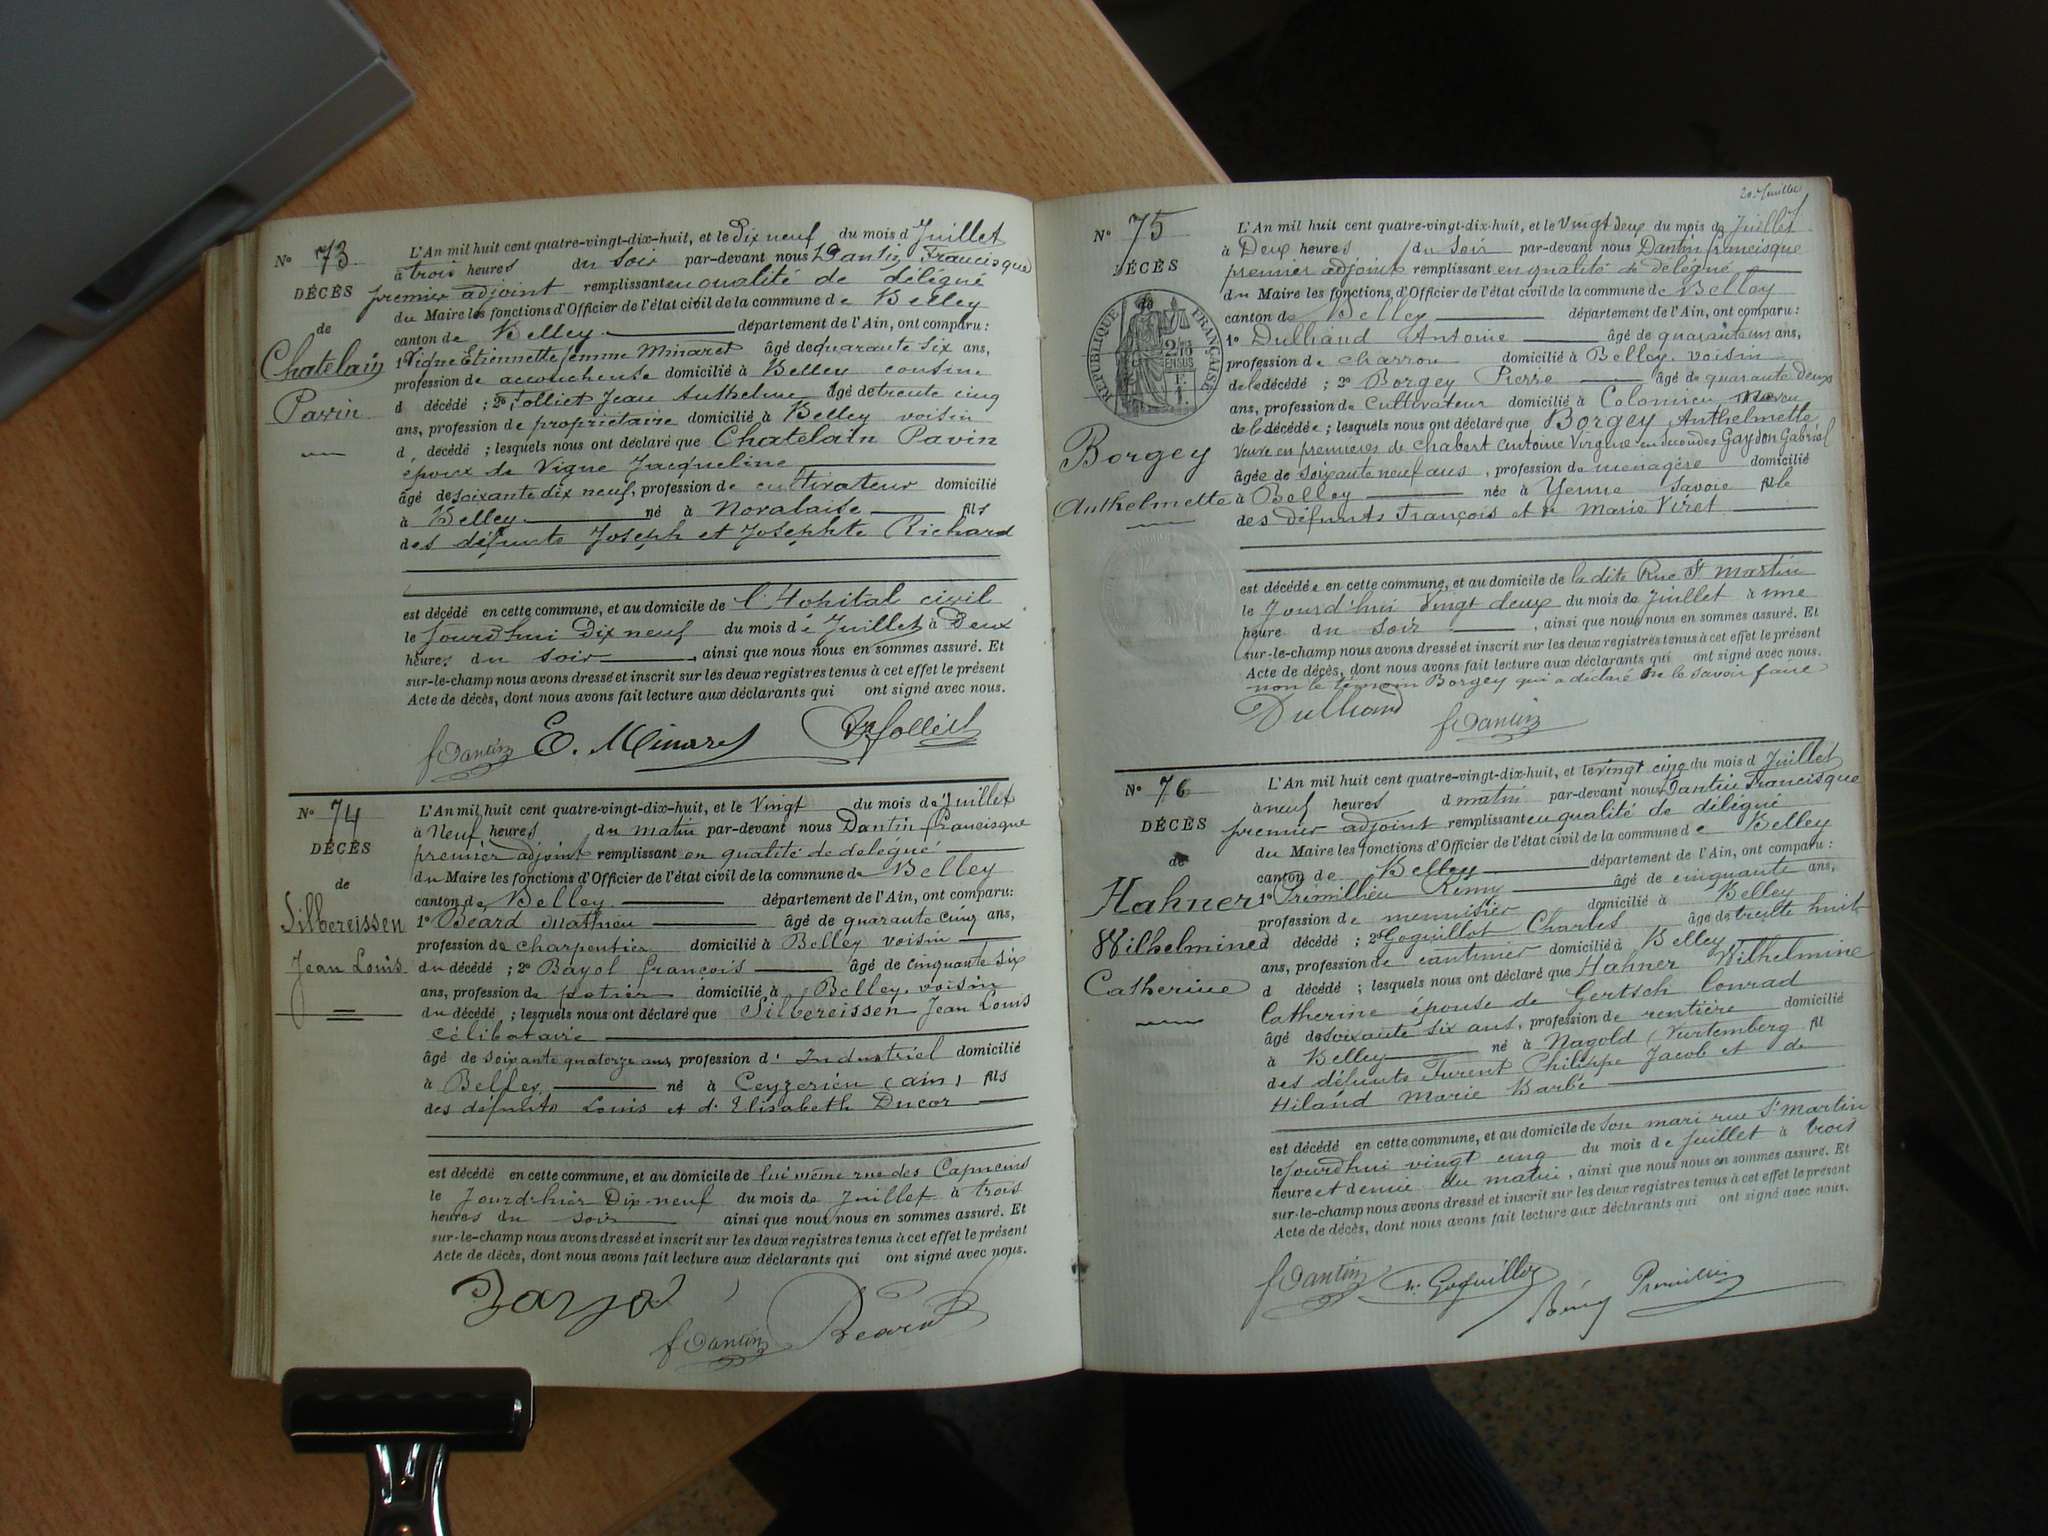 N° 73
DÉCÈS
de
Chatelain
Pavin
L'An mil huit cent quatre-vingt-dix-huit, et le Dix neuf du mois d Juillet
à trois heures du soir par-devant nous Dantin Francisque
premier adjoint remplissant en qualité de délégué
du Maire les fonctions d'Officier de l'état civil de la commune de Belley
canton de Belley département de l'Ain, ont comparu :
1° Vigne Etiennette femme Minaret âgé de quarante six ans,
profession de accoucheuse domicilié à Belley cousine
d décédé ; 2° Folliet Jean Anthelme âgé de trente cinq
ans, profession de propriétaire domicilié à Belley voisin
d décédé ; lesquels nous ont déclaré que Chatelain Pavin
époux de Vigne Jacqueline
âgé de soixante dix neuf, profession de cultivateur domicilié
à Belley né à Novalaise fils
des défunts Joseph et Josephte Richard
est décédé en cette commune, et au domicile de l'Hopital civil
le Jourd'hui Dix neuf du mois de Juillet à Deux
heures du soir, ainsi que nous nous en sommes assuré. Et
sur-le-champ nous avons dressé et inscrit sur les deux registres tenus à cet effet le présent
Acte de décès, dont nous avons fait lecture aux déclarants qui ont signé avec nous.
f Dantin E. Minaret Folliet
N° 74
DÉCÈS
de
Silbereissen
Jean Louis
L'An mil huit cent quatre-vingt-dix-huit, et le Vingt du mois de Juillet
à Neuf heures du matin par-devant nous Dantin Francisque
premier adjoint remplissant en qualité de délégué
du Maire les fonctions d'Officier de l'état civil de la commune de Belley
canton de Belley département de l'Ain, ont comparu:
1° Béard Mathieu âgé de quarante cinq ans,
profession de charpentier domicilié à Belley voisin
du décédé ; 2° Bayol françois âgé de cinquante six
ans, profession de potier domicilié à Belley voisin
du décédé ; lesquels nous ont déclaré que Silbereissen Jean Louis
célibataire
âgé de soixante quatorze ans, profession d' Industriel domicilié
à Belley né à Ceyzerien (ain) fils
des défunts Louis et d' Elisabeth Ducor
est décédé en cette commune, et au domicile de lui même rue des Capucins
le Jourd'hier Dix-neuf du mois de Juillet à trois
heures du soir ainsi que nous nous en sommes assuré. Et
sur-le-champ nous avons dressé et inscrit sur les deux registres tenus à cet effet le présent
Acte de décès, dont nous avons fait lecture aux déclarants qui ont signé avec nous.
f Dantin Béard
20 Juillet
N° 75
DÉCÈS
de
RÉPUBLIQUE FRANÇAISE
Borgey
Anthelmette
L'An mil huit cent quatre-vingt-dix-huit, et le Vingt deux du mois de Juillet
à Deux heures du soir par-devant nous Dantin francisque
premier adjoint remplissant en qualité de délégué
du Maire les fonctions d'Officier de l'état civil de la commune de Belley
canton de Belley département de l'Ain, ont comparu :
1° Dulliand Antoine âgé de quarante un ans,
profession de charron domicilié à Belley voisin
de la décédé ; 2° Borgey Pierre âgé de quarante deux
ans, profession de Cultivateur domicilié à Colomieu neveu
de la décédée ; lesquels nous ont déclaré que Borgey Anthelmette
Veuve en premières de Chabert Antoine Virgue en secondes Gaydon Gabriel
âgée de soixante neuf ans, profession de ménagère domicilié
à Belley née à Yenne Savoie fille
des défunts François et de Marie Viret
est décédée en cette commune, et au domicile de la dite Rue St Martin
le Jourd'hui Vingt deux du mois de Juillet à une
heure du soir, ainsi que nous nous en sommes assuré. Et
sur-le-champ nous avons dressé et inscrit sur les deux registres tenus à cet effet le présent
Acte de décès, dont nous avons fait lecture aux déclarants qui ont signé avec nous.
non le témoin Borgey qui a déclaré ne le savoir faire
Dulliand f Dantin
N° 76
DÉCÈS
de
Hahner
Wilhelmine
Catherine
L'An mil huit cent quatre-vingt-dix-huit, et le vingt cinq du mois d Juillet
à neuf heures d matin par-devant nous Dantin Francisque
premier adjoint remplissant en qualité de délégué
du Maire les fonctions d'Officier de l'état civil de la commune de Belley
canton de Belley département de l'Ain, ont comparu :
1° Prémillieu Rémy âgé de cinquante ans,
profession de menuisier domicilié à Belley
d décédé ; 2° Goguillot Charles âgé de trente huit
ans, profession de cantinier domicilié à Belley
d décédé ; lesquels nous ont déclaré que Hahner Wilhelmine
Catherine épouse de Gertsch Conrad
âgé de soixante six ans, profession de rentière domicilié
à Belley né à Nagold (Vurtemberg fil
des défunts Furent Philippe Jacob et de
Hiland Marie Barbe
est décédé en cette commune, et au domicile de son mari rue St Martin
le Jourd'hui vingt cinq du mois de Juillet à trois
heure et demie du matin, ainsi que nous nous en sommes assuré. Et
sur-le-champ nous avons dressé et inscrit sur les deux registres tenus à cet effet le présent
Acte de décès, dont nous avons fait lecture aux déclarants qui ont signé avec nous.
f Dantin Goguillot Rémy Prémillieu